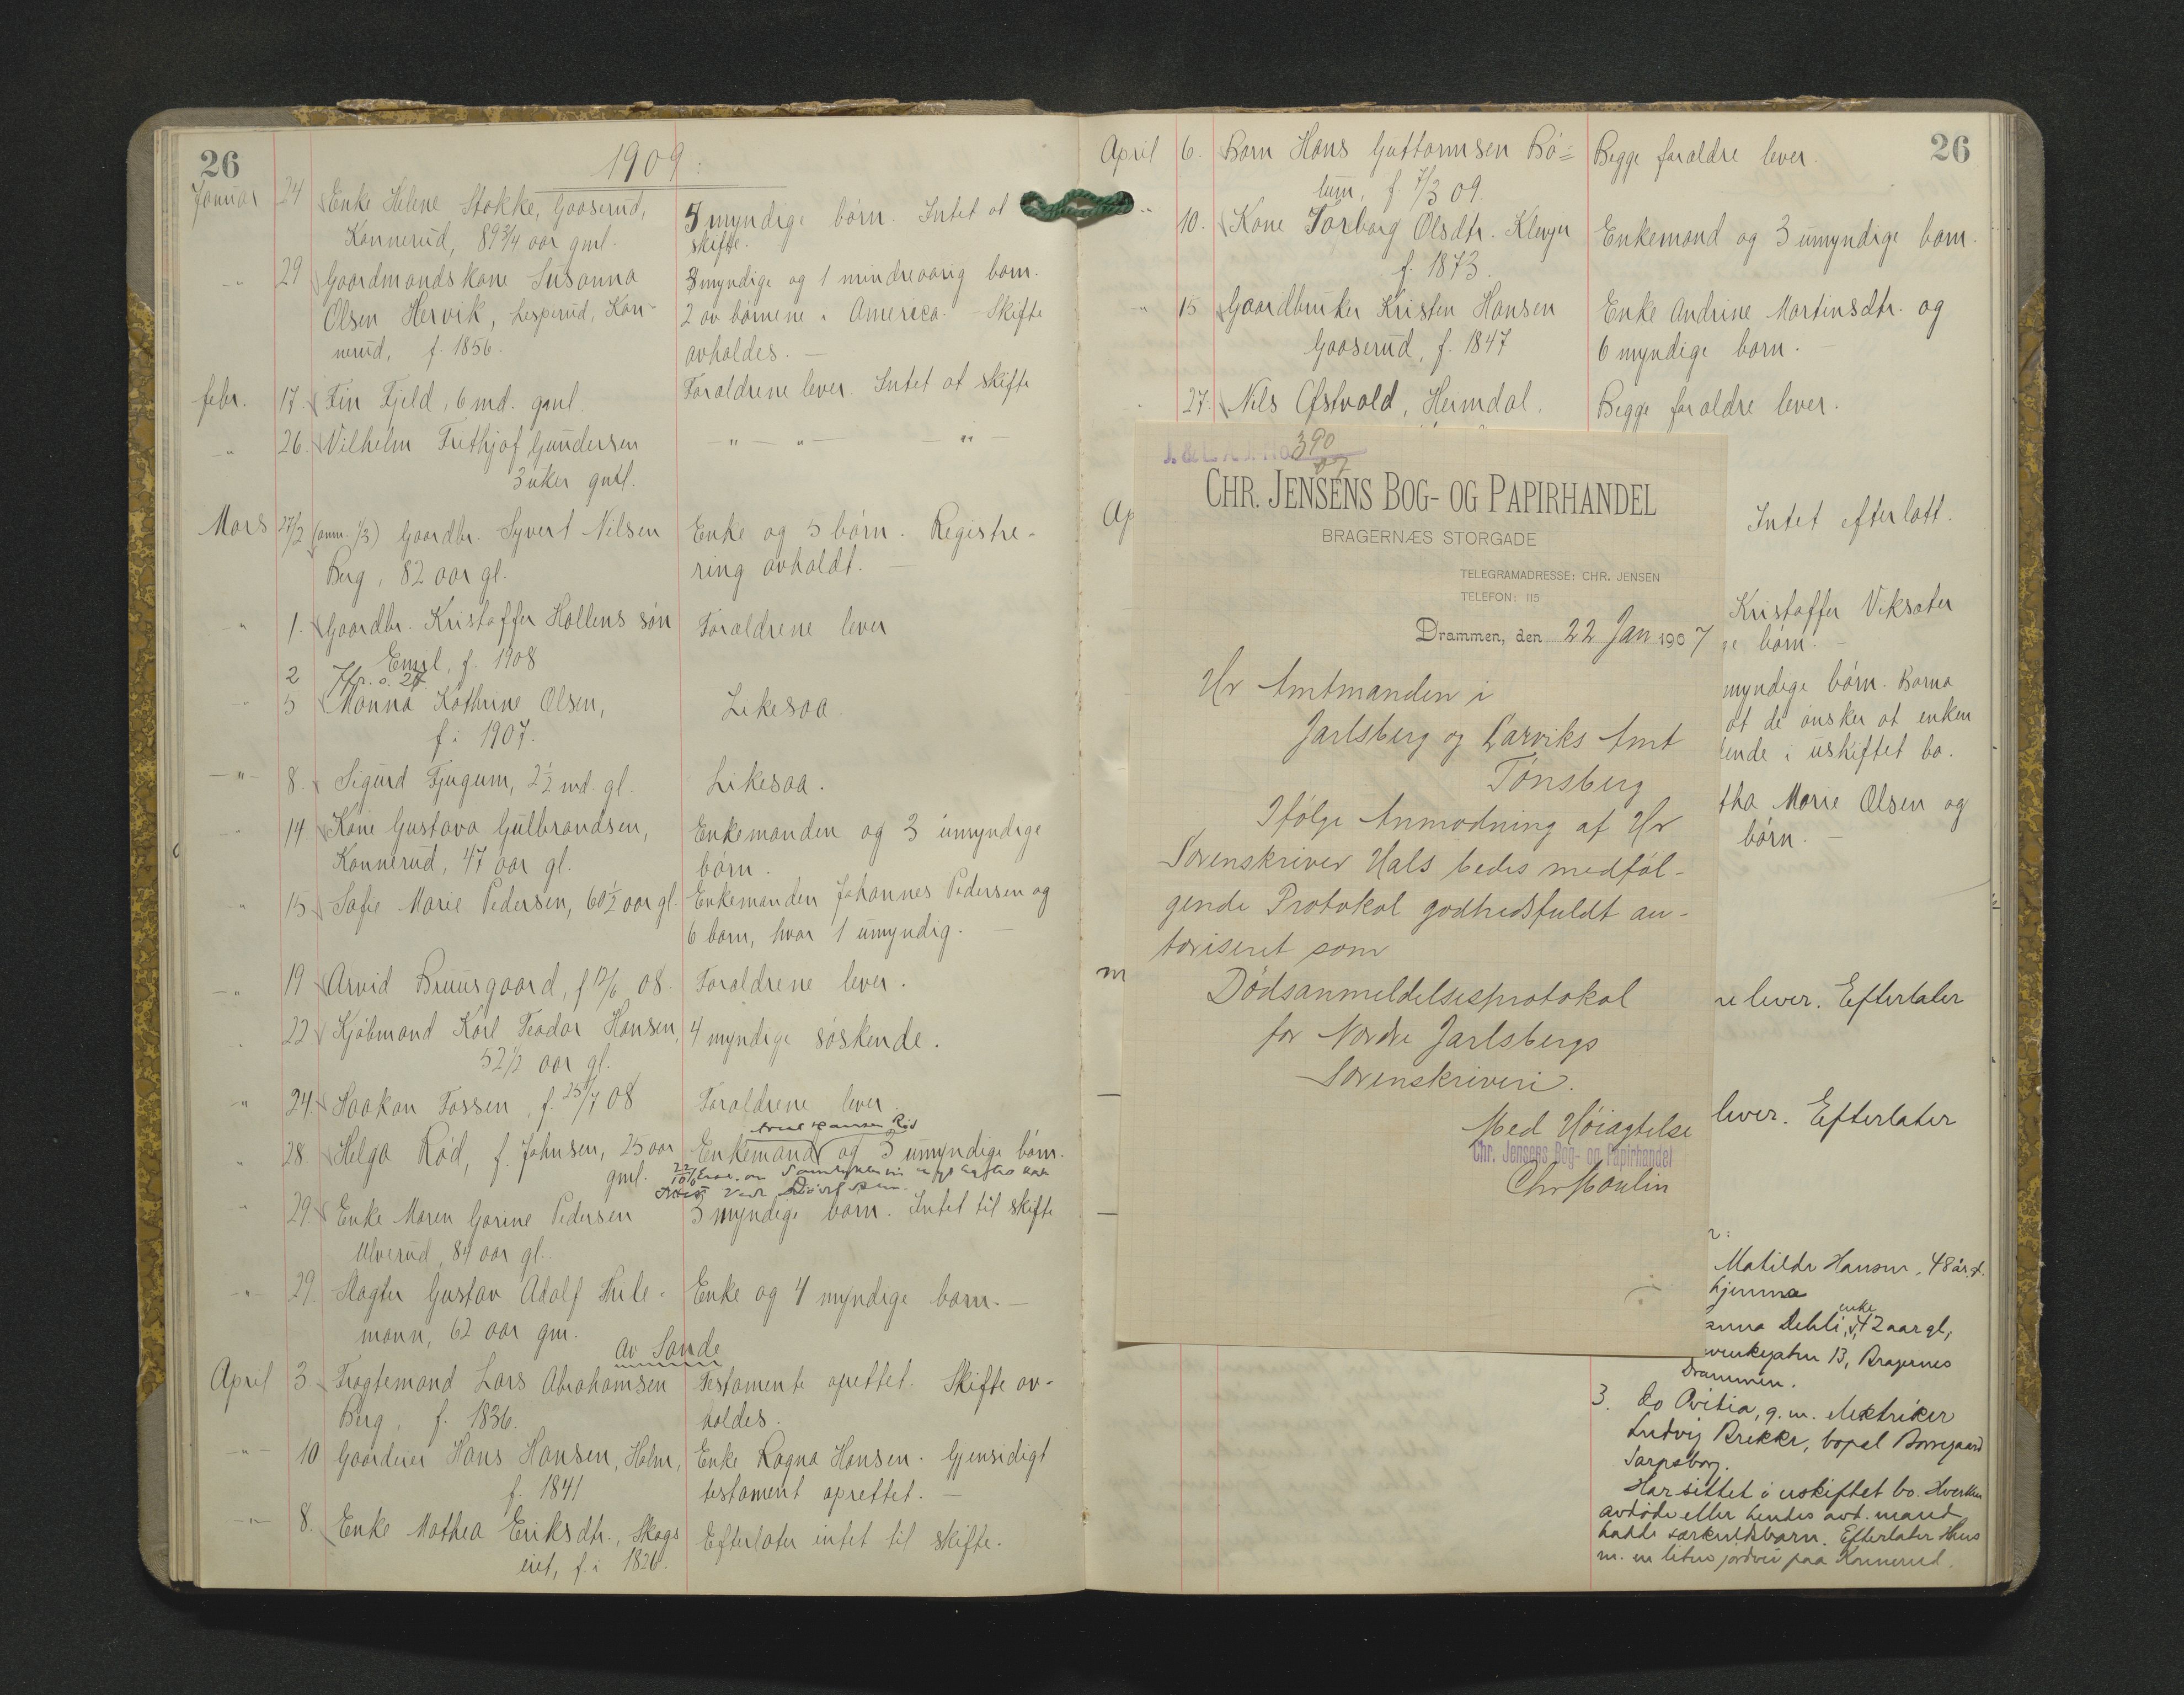 26
1909:
Januar 24 Enke Helene Stokke, Gooserud,
Konnerud, 89 3/4 aar gml.
5 myndige børn. Intet at
skifte.
-"- 29 Gaardmandskone Susanna
Olsen Hervik, Lesperud, Kon-
nerud, f. 1856.
3 myndige og 1 mindreaarig barn.
2 av børnene i America. - Skifte
avholdes. -
febr. 17. Fin Fjeld, 6 md. gml.
Forældrene lever. Intet at skifte
-"- 26. Vilhelm Frithjof Gundersen
3 uker gml.
-"- -"- -"-
Mars 27/2 (anm. 1/3) Gaardbr. Syvert Nilsen
Berg, 82 aar gl.
Enke og 5 børn. Registre-
ring avholdt. -
-"- 1. Gaardbr. Kristoffer Hallens søn
Emil, f. 1908
Forældrene lever
2 Jfr. s. 27.
-"- 5 Manna Kathrine Olsen,
f. i 1907.
Likesaa
-"- 8. Sigurd Fjugum, 2 1/2 md. gl.
Likesaa.
-"- 14. Kone Gustava Gulbrandsen,
Konnerud, 47 aar gl.
Enkemanden og 3 umyndige
børn.
" 15 Sofie Marie Pedersen, 60 1/2 aar gl.
Enkemanden Johannes Pedersen og
6 barn, hvor 1 umyndig. -
-"- 19 Arvid Bruusgaard, f 12/6 08.
Forældrene lever.
" 22 Kjøbmand Karl Teodor Hansen,
52 1/2 aar gl.
4 myndige søskende.
" 24. Haakon Fossen, f. 25/7 08
Forældrene lever.
" 28. Helga Rød, f. Johnsen, 25 aar
gml.
Hansen Rød
Enkemand og 3 umyndige børn.
" 29. Enke Maren Gorine Pedersen
Ulverud, 84 aar gl.
5 myndige barn. Intet til skifte
-"- 29. Slagter Gustav Adolf Thile-
mann, 62 aar gm.
Enke og 4 myndige barn. -
av Sande
April 3 Fragtemand Lars Abrahamsen
Berg, f. 1836.
Testamente oprettet. Skifte av-
holdes.
-"- 10 Gaardeier Hans Hansen, Holm,
f. 1841
Enke Ragna Hansen. Gjensidigt
testament oprettet. -
-"- 8. Enke Mathea Eriksdtr., Skogs
eiet, f. i 1826.
Efterlater intet til skifte.
26
April 6. Barn Hans Guttormsen Bø-
tum, f. 7/3 09.
Begge forældre lever.
" 10. Kone Torborg Olsdtr. Klevjer
f. 1873.
Enkemand og 3 umyndige barn.
-"- 15 Gaardbruker Kristen Hansen
Gooserud, f. 1847
Enke Andrine Martinsdtr. og
6 myndige barn. -
27. Nils Ofstvold, Heimdal.
Begge forældre lever.
Ap
Intet efterlatt.
Kristoffer Viksøter
ge børn. -
myndige børn. Barna
at de ønsker at enken
ende i uskiftet bo.
tha Marie Olsen og
børn. -
m
re lever. Efterlater
lever. Efterlater
r:
Matilde Hansen, 48 år.
hjemme
enke
anna Dehli, 42 aar gl,
13, Bragernes
Drammen.
3. do Ovitia, g. m. elektriker
Ludvig Brekke, bopæl Borregaard
Sarpsborg.
Har sittet i uskiftet bo. Hverken
avdøde eller hendes avd. mand
hadde særkuldsbarn. Efterlater Hus
m. en liten jordvei paa Konnerud.
J. & L. A. J. No 390/07
CHR. JENSENS BOG- OG PAPIRHANDEL
BRAGERNÆS STORGADE
TELEGRAMADRESSE: CHR. JENSEN
TELEFON: 115
Drammen, den 22 Jan 1907
Hr Amtmanden i
Jarlsberg og Larviks Amt
Tønsberg
Ifølge Anmodning af Hr
Sorenskriver Hals bedes medføl-
gende Protokol godhedsfuldt au-
toriseret som
Dødsanmeldelsesprotokol
for Nordre Jarlsbergs
Sorenskriveri.
Med Høiagtelse
Chr. Jensens Bog- og Papirhandel
Chr Moulin